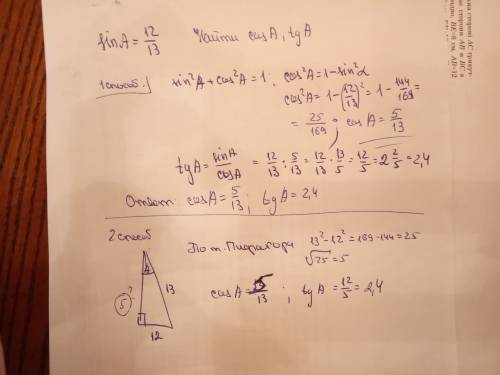 sinA = 12/13 Найти cosA, tgA
1 способ. sin²A + cos²A = 1; cos²A = 1 - sin²α
cos²A = 1 - (12/13)² = 1 - 144/169 =
= 25/169, cosA = 5/13
tgA = sinA/cosA = 12/13 : 5/13 = 12/13 · 13/5 = 12/5 = 2 2/5 = 2,4
Ответ: cosA = 5/13; tgA = 2,4
2 способ
По т. Пифагора 13² - 12² = 169 - 144 = 25
√25 = 5
cosA = 5/13; tgA = 12/5 = 2,4
A
5 ?
13
12